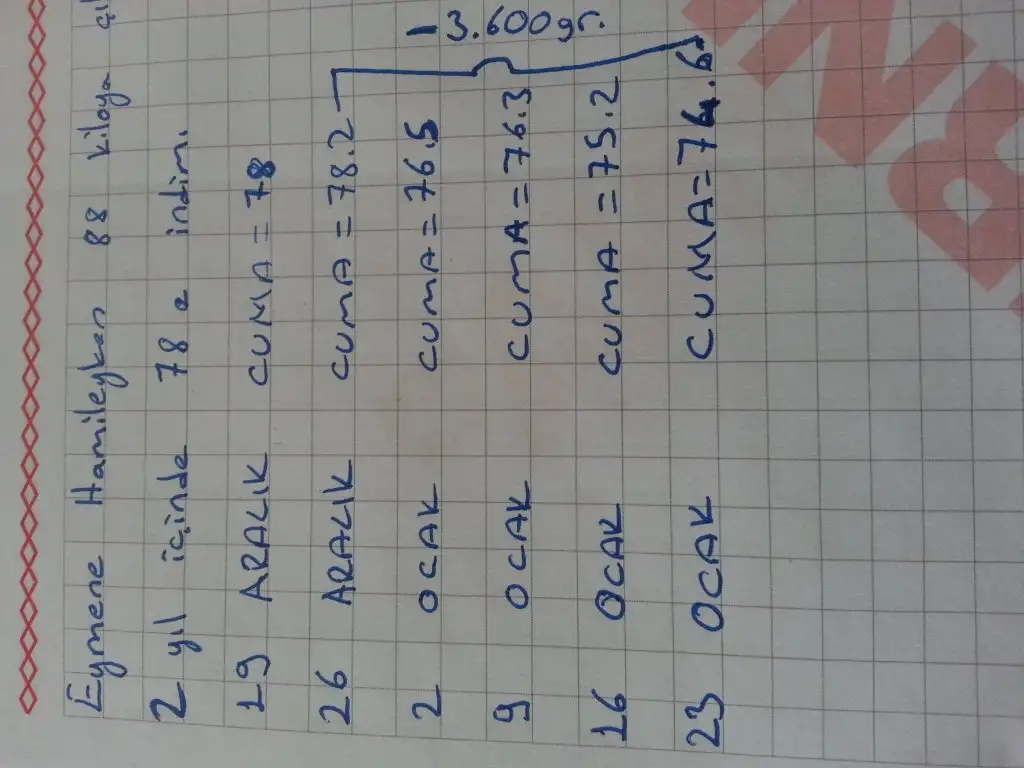 Eymene Hamileyken 88 kiloya
2 yıl içinde 78 e indim.
19 ARALIK CUMA = 78
26 ARALIK CUMA = 78.2
2 OCAK CUMA = 76.5
9 OCAK CUMA = 76.3
16 OCAK CUMA = 75.2
23 OCAK CUMA = 74.6
- 3.600 gr.